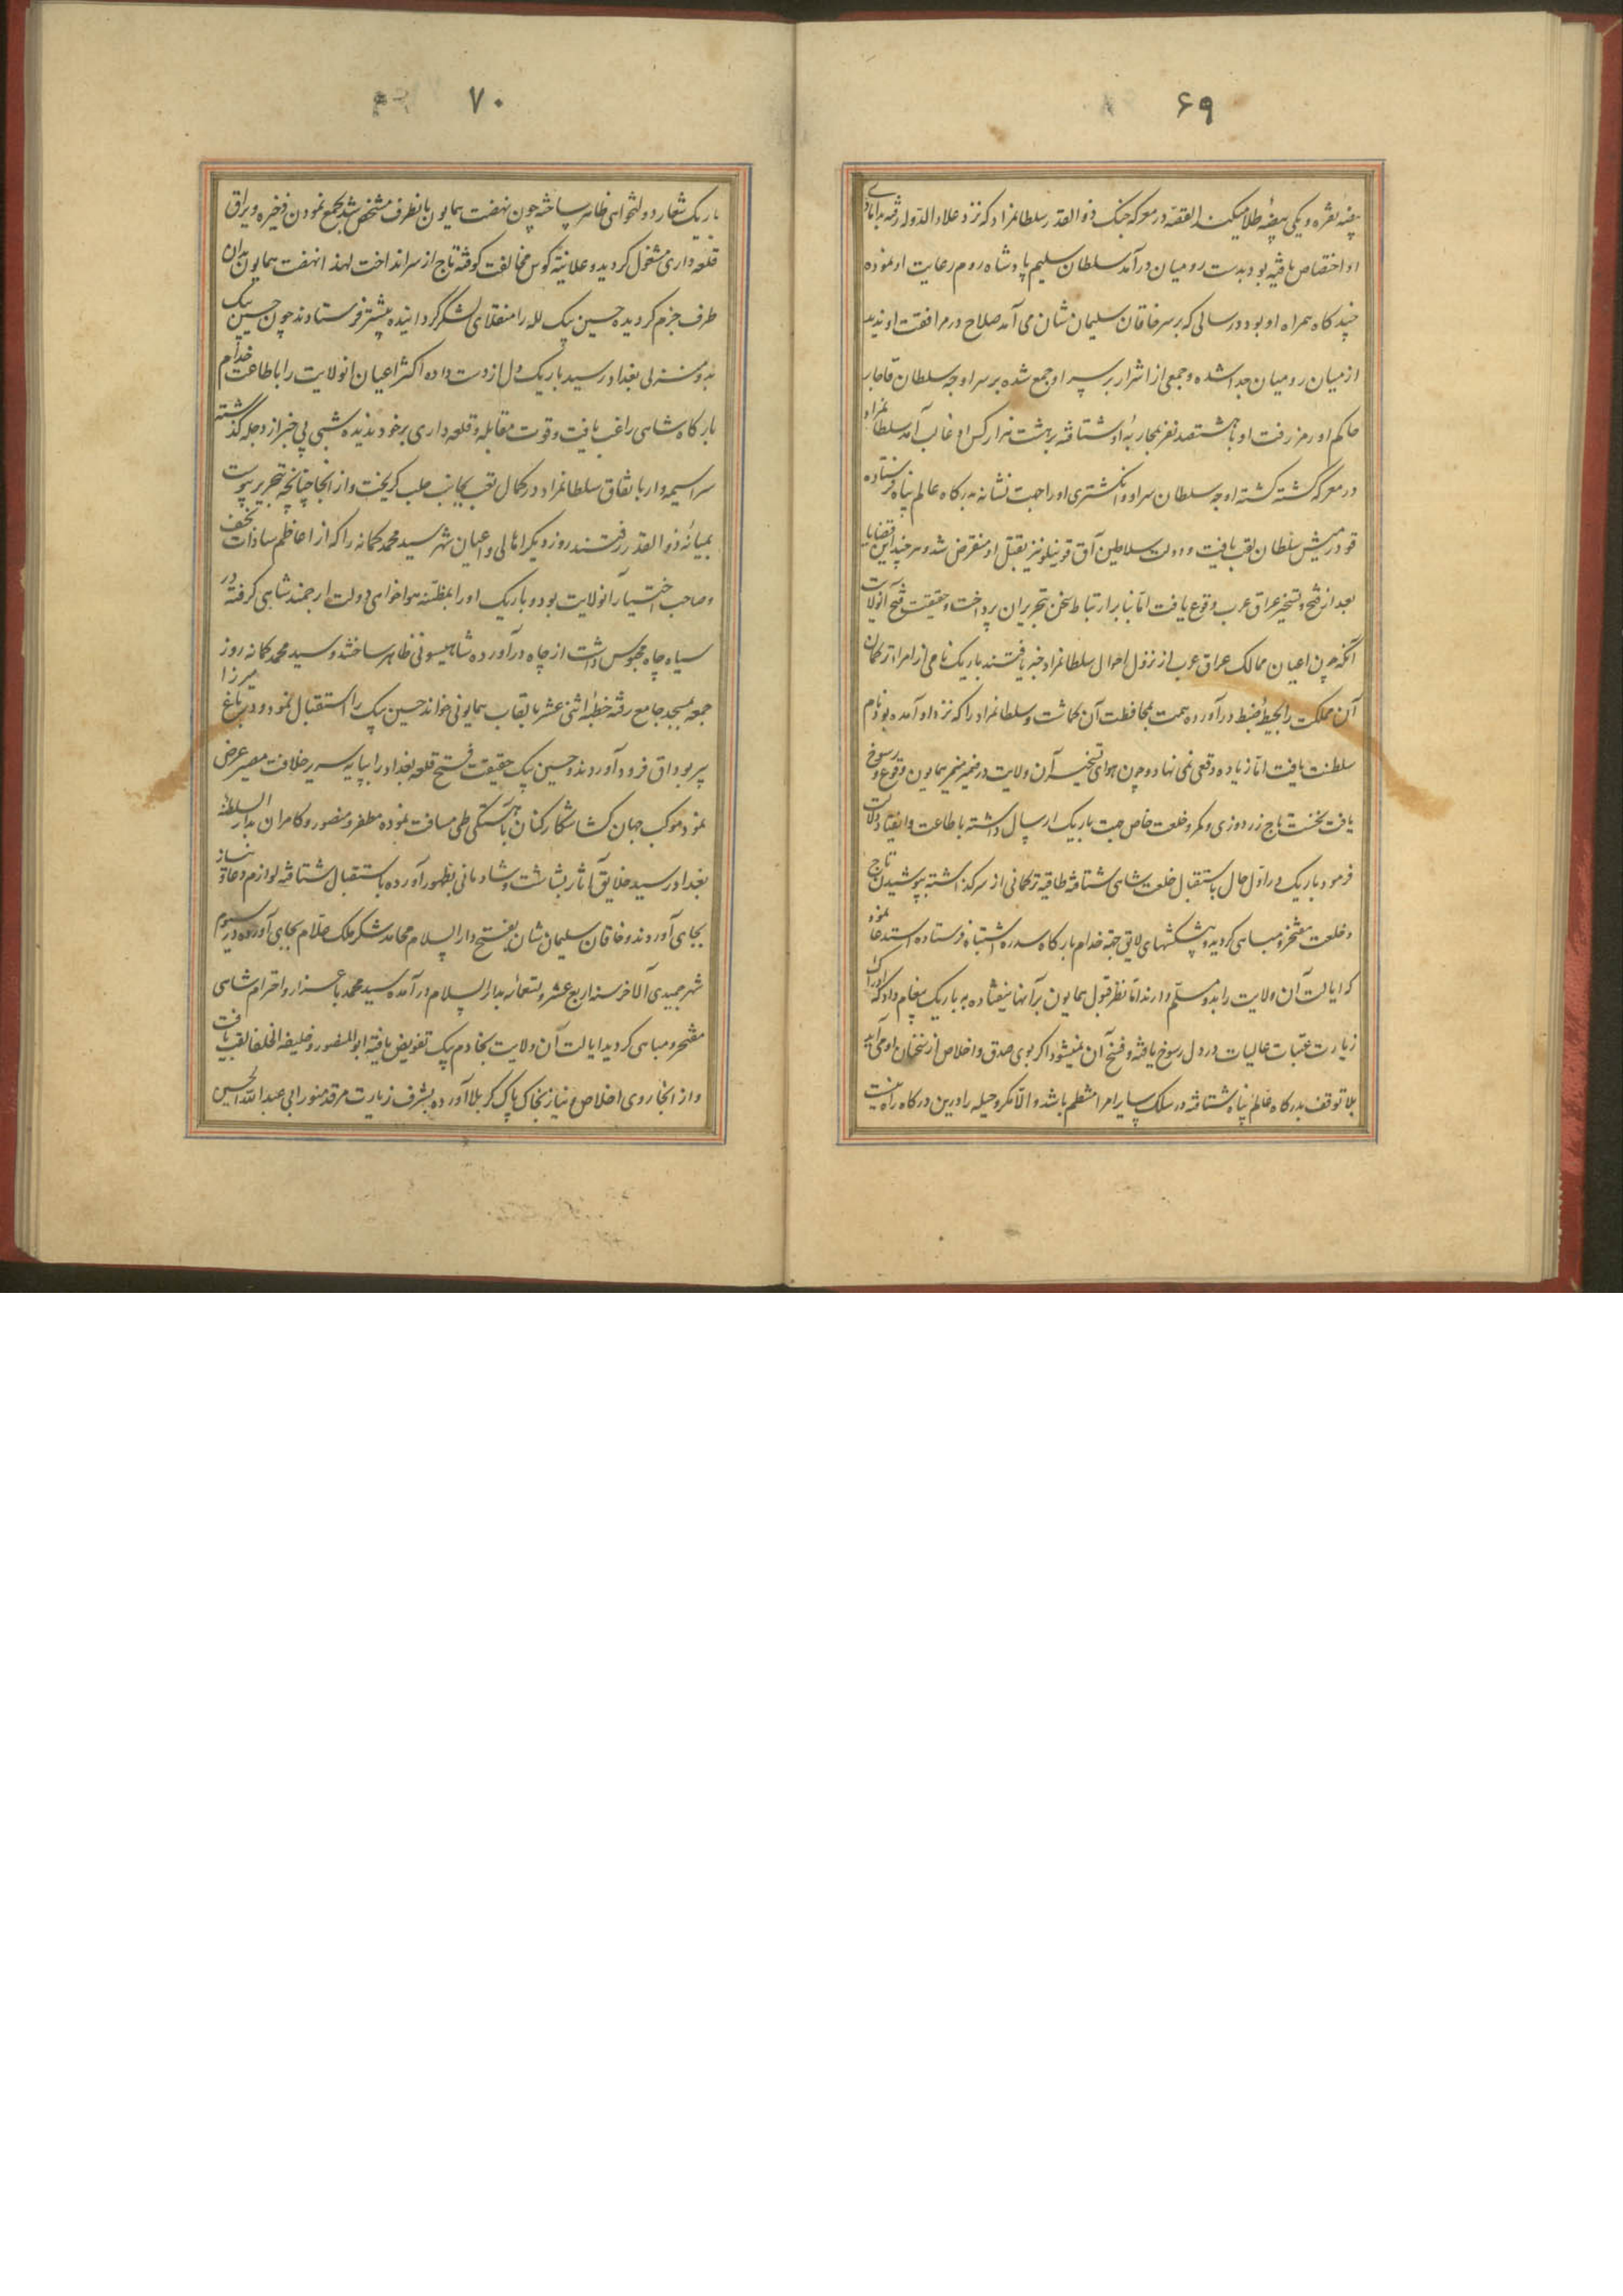 ۶۹
بیضه نقره و یکی بیضهٔ طلا میکند القصه در معرکه جنک ذوالقدر سلطانمراد که نزد علاءالدوله رفته بدامادی
او اختصاص یافته بود بدست رومیان درآمد سلطان سلیم پادشاه روم رعایت او نموده
چند کاه همراه او بود در سالی که بر سر خاقان سلیمان شان می آمد صلاح در مرافقت او ندید
از میان رومیان جدا شده و جمعی از اشرار بر سر او جمع شده بر سر اوجه سلطان قاجار
حاکم اورمز رفت او با هشتصد نفر بمحاربهٔ او شتافته بر هشت هزار کس او غالب آمد سلطانمراد
در معرکه کشته کشته اوجه سلطان سر او و انکشتری او را جهت نشانه بدرکاه عالم پناه فرستاده
قودرمیش سلطان لقب یافت و دولت سلاطین آق قوینلو نیز بقتل او منقرض شد و هر چند این قضایا
بعد از فتح و تسخیر عراق عرب وقوع یافت اما بنابر ارتباط سخن بتحریر آن پرداخت و حقیقت فتح آنولایت
آنکه چون اعیان ممالک عراق عرب از نزول احوال سلطانمراد خبر یافتند باریک نامی از امراء ترکمان
آن مملکت را بحیطهٔ ضبط درآورده همت بمحافظت آن کماشت و سلطانمراد را که نزد او آمده بود نام
سلطنت یافت اما زیاده وقعی نمی نهاد و چون هوای تسخیر آن ولایت در ضمیر منیر همایون وقوع و رسوخ
یافت نخست تاج زردوزی و کمر و خلعت خاص جهت باریک ارسال داشته باطاعت و انقیاد دلالت
فرمود باریک در اول حال باستقبال خلعت شاهی شتافته طاقیه ترکمانی از سر گذاشته بپوشیدن تاج
و خلعت مفتخر و مباهی کردید و پیشکشهای لایق جهة خدام بارکاه سدره اشتباه فرستاده استدعا نمود
که ایالت آن ولایت را بدو مسلم دارند اما نظر قبول همایون بر آنها نیفتاده به باریک پیغام داد که ادراک
زیارت عتبات عالیات در دل رسوخ یافته و فسخ آن نمیشود اکر بوی صدق و اخلاص از سخنان او می آید
بلا توقف بدرکاه عالم پناه شتافته در سلک سایر امرا منتظم باشد و الا مکر و حیله را درین درکاه راه نیست
۷۰
باریک شعار دولتخواهی ظاهر ساخته چون نهضت همایون بانطرف مشخص شد بجمع نمودن ذخیره و یراق
قلعه داری مشغول کردید و علانیة کوس مخالفت کوفته تاج از سر انداخت لهذا نهضت همایون بدان
طرف جزم کردیده حسین بیک لله را منقلای لشکر کردانیده پیشتر فرستادند چون حسین بیک
بدو منزلی بغداد رسید باریک دل از دست داده اکثر اعیان انولایت را باطاعت خدام
بارکاه شاهی راغب یافت و قوت مقابله و قلعه داری بر خود ندیده شبی بی خبر از دجله کذشته
سراسیمه وار باتفاق سلطانمراد در کمال تعب بجانب حلب کریخت و از آنجا چنانچه بتحریر پیوست
بمیانهٔ ذوالقدر رفتند روز دیکر اهالی و اعیان شهر سید محمد کمانه را که از اعاظم سادات نجف
و صاحب اختیار آنولایت بود و باریک او را بمظنه هواخواهی دولت ارجمند شاهی کرفته در
سیاه چاه محبوس داشت از چاه درآورده شاهیسونی ظاهر ساختند و سید محمد کمانه روز
جمعه بمسجد جامع رفته خطبهٔ اثنی عشر بالقاب همایونی خواند حسین بیک را استقبال نمود و در باغ میرزا
پیر بوداق فرود آوردند و حسین بیک حقیقت فتح قلعه بغداد را بپایه سریر خلافت مصیر عرض
نمود موکب جهان کشا شکار کنان باهستکی طی مسافت نموده مظفر و منصور و کامران بدار السلطنه
بغداد رسید خلایق آثار بشاشت و شادمانی بظهور آورده باستقبال شتافته لوازم دعا و نیاز
بجای آوردند و خاقان سلیمان شان بفتح دار السلام محامد شکر ملک علام بجای آورده در سیوم
شهر جمیدی الآخر سنه اربع عشر و تسعمائه بدار السلام درآمده سید محمد باعزاز و احترام شاهی
مفتخر و مباهی کردید ایالت آن ولایت بخادم بیک تفویض یافته ابوالمنصور و خلیفة الخلفا لقب یافت
و از آنجا روی اخلاص و نیاز بخاک پاک کربلا آورده بشرف زیارت مرقد منور ابی عبدالله الحسین